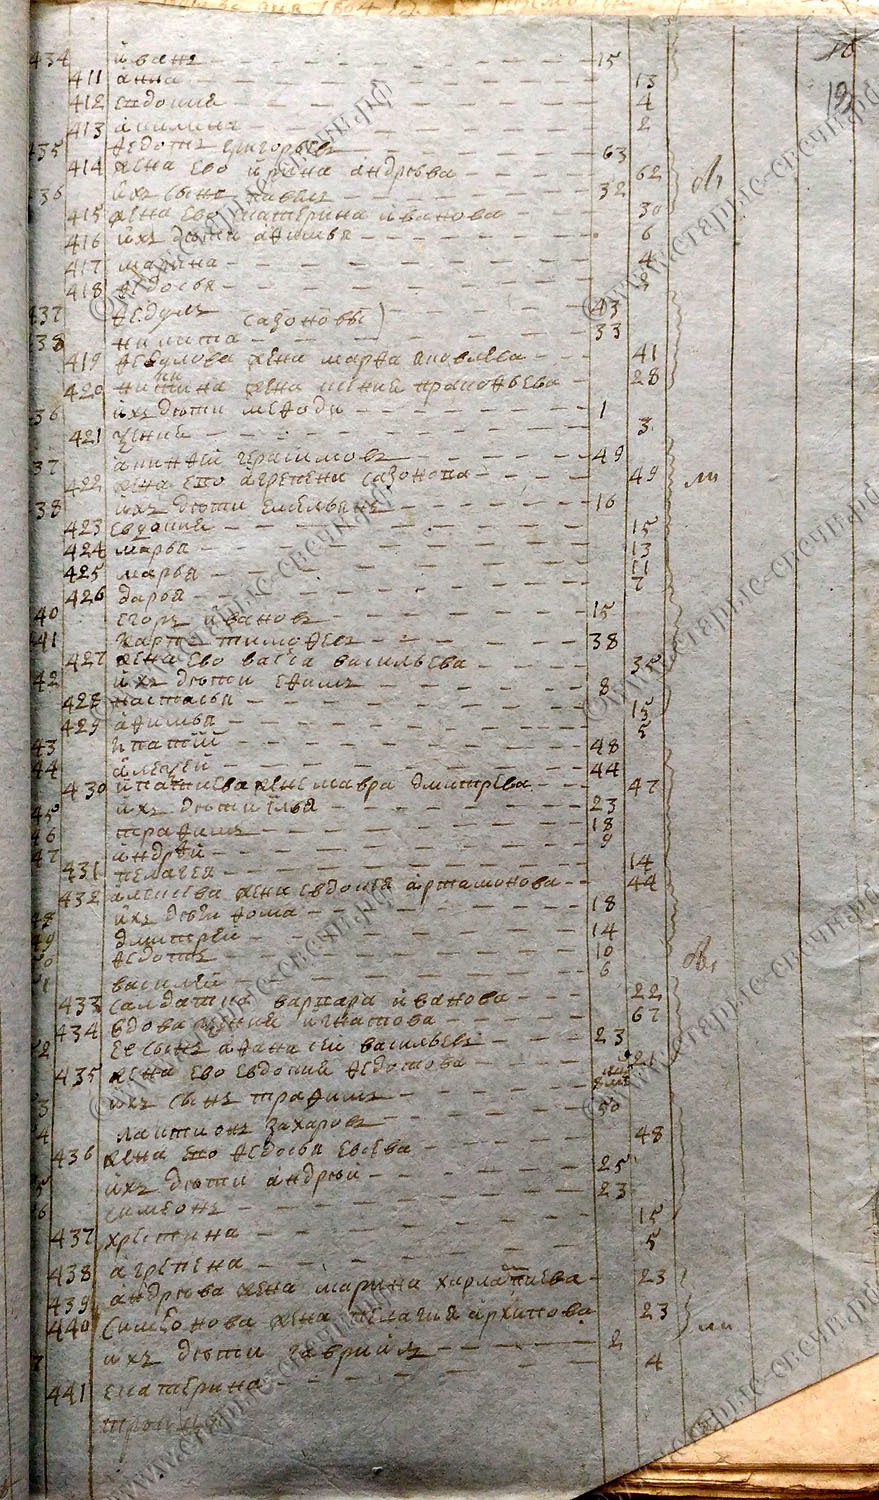 434 иванъ 15
411 анна 13
412 евдокия 4
413 акилина 2
435 федотъ григорьевъ 63
414 жена ево ирина андреева 62
36 ихъ сынъ павелъ 32
415 жена ево екатерина иванова 30
416 ихъ дети афимья 6
417 марина 4
418 федосья 2
437 федулъ 43
38 никита сазоновы) 33
419 федулова жена марфа яковлева 41
420 никитина жена ксения прокофьева 28
36 ихъ дети мефоди 1
421 ксения 3
37 аникей герасимовъ 49
422 жена ево агрепена сазонова 49
38 ихъ дети емельянъ 16
423 евдокия 15
424 марья 13
425 марья 11
426 дарья 7
40 егоръ ивановъ 15
41 карпъ тимофеевъ 38
427 жена ево васса васильева 35
42 ихъ дети ефимъ 8
428 настасья 15
429 афимья 5
43 ипатий 48
44 алексей 44
430 ипатиева жена мавра дмитрева 47
45 ихъ дети илья 23
46 трафимъ 18
47 андрей 9
431 пелагея 14
432 алексеева жена евдокия артамонова 44
48 ихъ дети фома 18
49 дмитрей 14
50 федотъ 10
1 василей 6
433 салдатка варвара иванова 22
434 вдова ксения игнатова 67
2 ее сынъ афанасей васильевъ 23
435 жена ево евдокия федотова 21
3 ихъ сынъ трафимъ
4 лактионъ захаровъ 50
436 жена ево федосья евсева 48
5 ихъ дети андрей 25
6 симеонъ 23
437 христина 15
438 агрепена 5
439 андреева жена марина харлампиева 23
440 симеонова жена пелагия архипова 23
7 ихъ дети гавриилъ 2
441 екатерина 4
©www.старые-свечи.рф